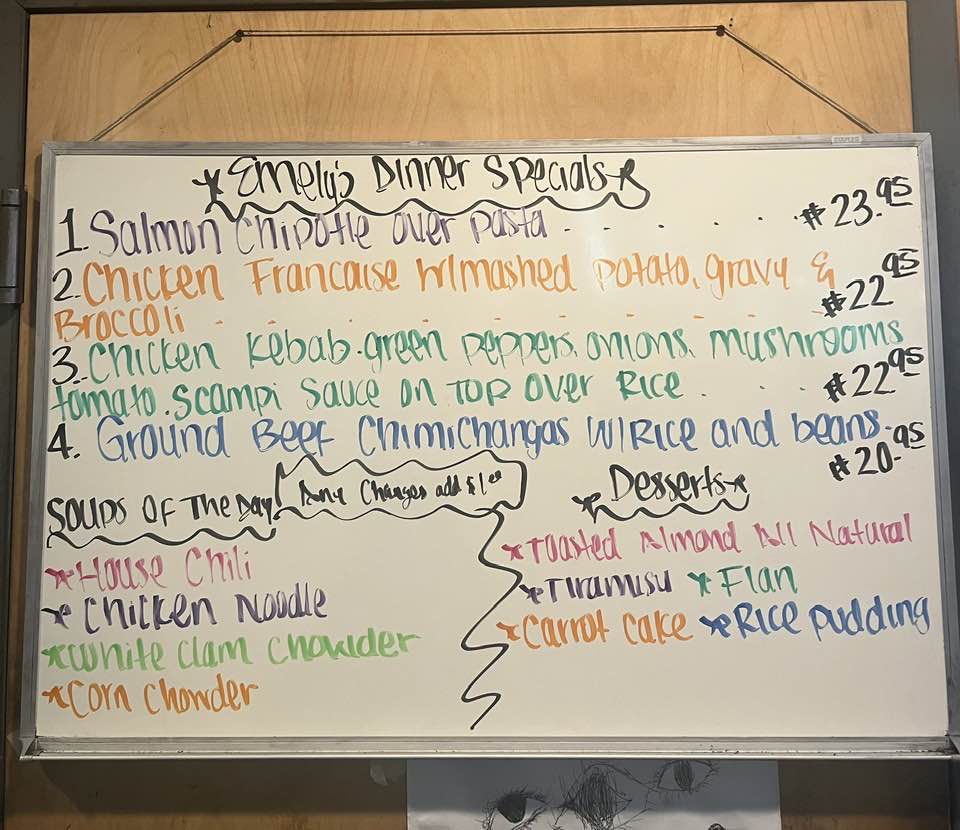 Emely's Dinner Specials
1. Salmon Chipotle over pasta $23.95
2. Chicken Francaise w/mashed potato, gravy &
Broccoli $22.95
3. Chicken Kebab. green peppers, onions, mushrooms
tomato. Scampi Sauce on TOP over Rice $22.95
4. Ground Beef Chimichangas w/Rice and beans $20.95
Soups Of The Day
Any Changes add $1.00
House Chili
Chicken Noodle
White Clam Chowder
Corn Chowder
Desserts
Toasted Almond All Natural
Tiramisu Flan
Carrot Cake Rice Pudding
STAPLES